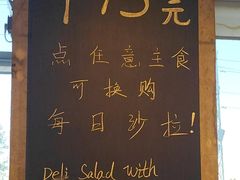 元
点任意主食
可换购
每日沙拉!
Deli Salad with